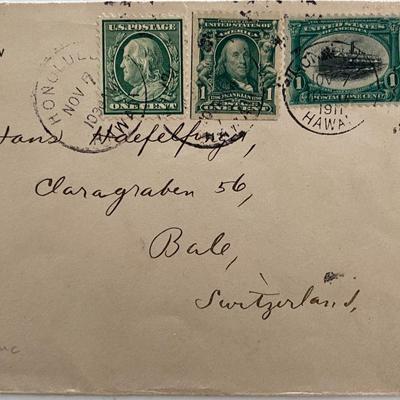 U.S. POSTAGE
ONE CENT
SERIES 1902
UNITED STATES OF AMERICA
1 FRANKLIN 1
UNITED STATES OF AMERICA
1 POSTAGE ONE CENT 1
HONOLULU
NOV 7
HAWAII
NOV 7
1911
HAWA
Hans
Claragraben 56,
Bale,
Switzerland,